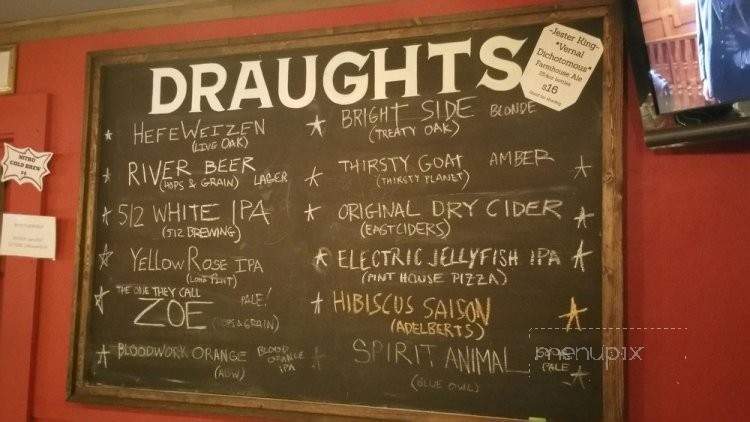 DRAUGHTS
-Jester King-
"Vernal
Dichotomous"
Farmhouse Ale
$16
NITRO
COLD BREW
HEFEWEIZEN
(LIVE OAK)
RIVER BEER
(HOPS & GRAIN) LAGER
512 WHITE IPA
(512 BREWING)
YELLOW ROSE IPA
(LONE PINT)
THE ONE THEY CALL
ZOE PALE!
(HOPS & GRAIN)
BLOODWORK ORANGE BLOOD
ORANGE
IPA
(ABW)
BRIGHT SIDE BLONDE
(TREATY OAK)
THIRSTY GOAT AMBER
(THIRSTY PLANET)
ORIGINAL DRY CIDER
(EASTCIDERS)
ELECTRIC JELLYFISH IPA
(PINTHOUSE PIZZA)
HIBISCUS SAISON
(ADELBERTS)
SPIRIT ANIMAL
PALE
(BLUE OWL)
menupix